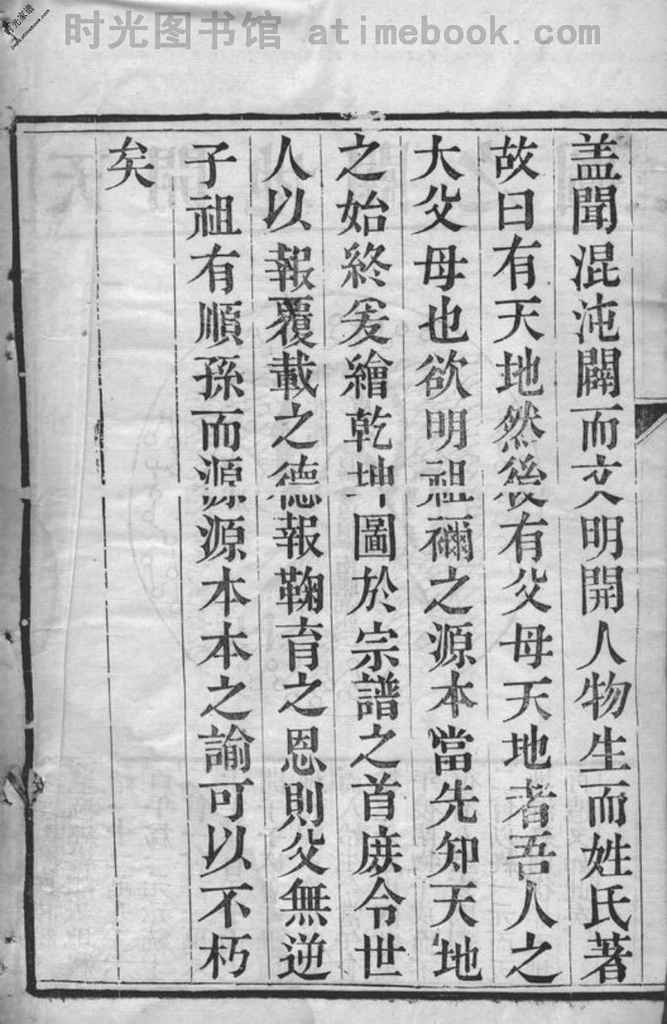 时光图书馆 atimebook.com
盖聞混沌闢而文明開人物生而姓氏著
故曰有天地然後有父母天地者吾人之
大父母也欲明祖禰之源本當先知天地
之始終爰繪乾坤圖於宗譜之首庻令世
人以報覆載之德報鞠育之恩則父無逆
子祖有順孫而源源本本之諭可以不朽
矣